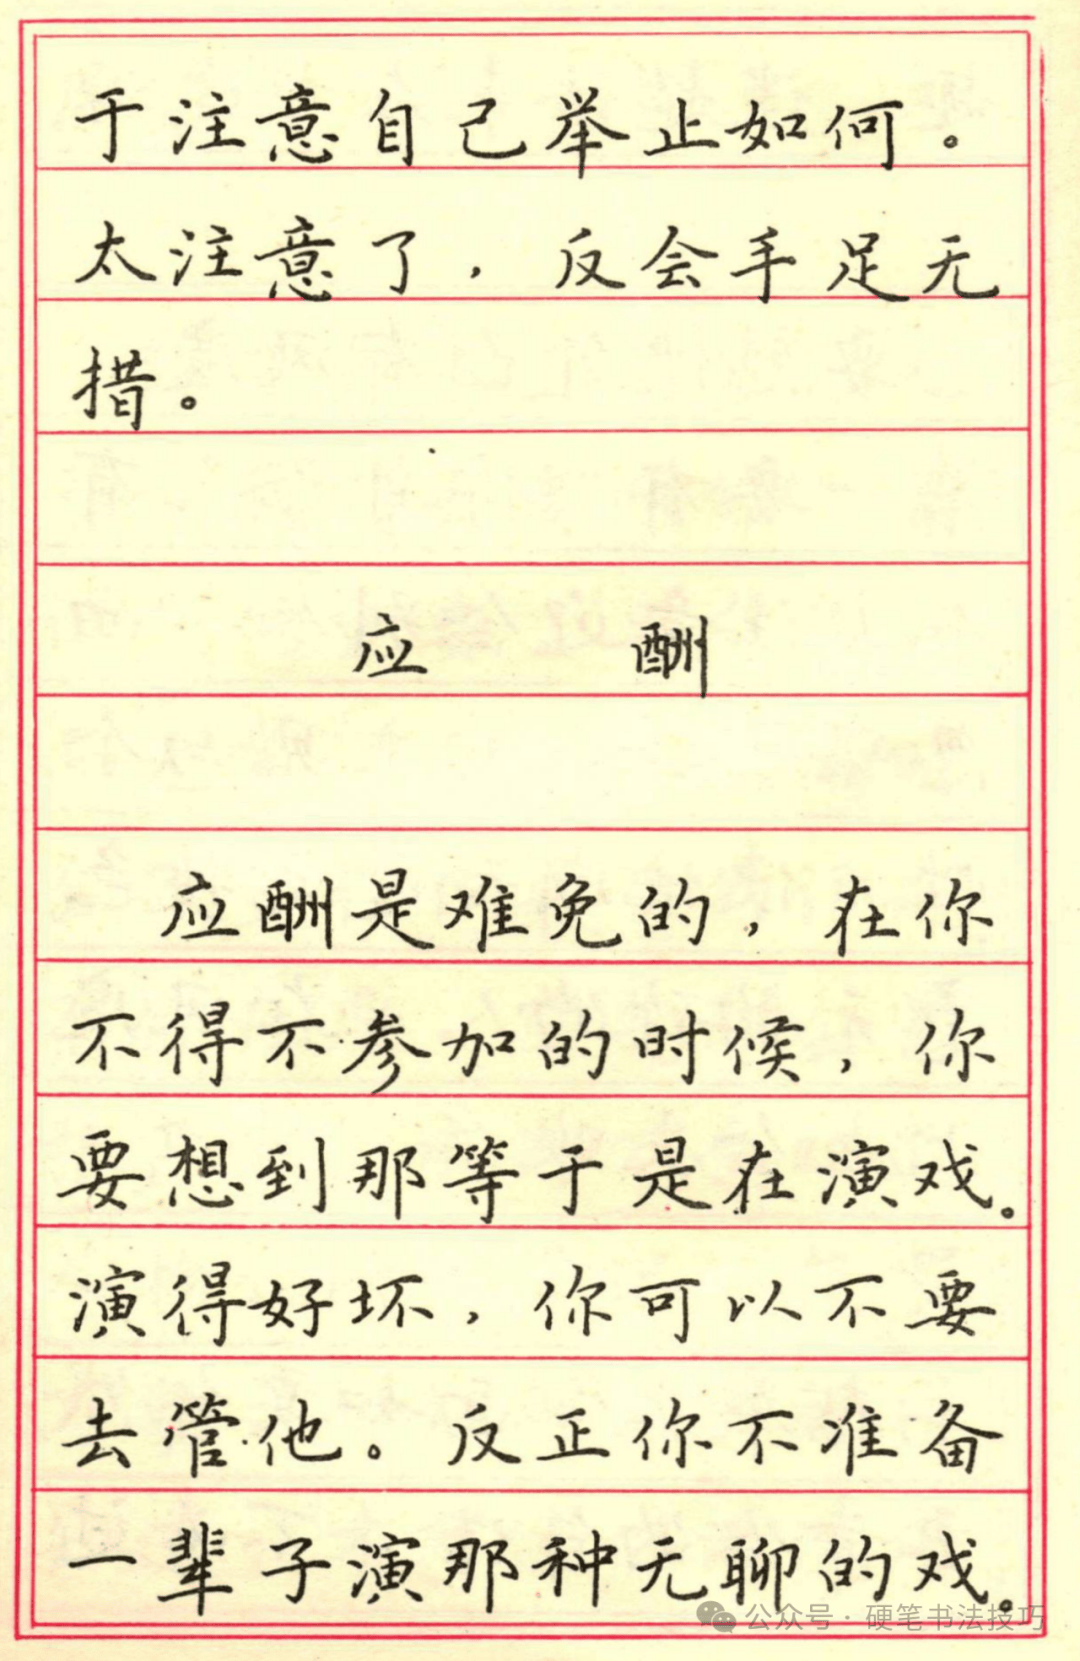 于注意自己举止如何。
太注意了，反会手足无
措。
应酬
应酬是难免的，在你
不得不参加的时候，你
要想到那等于是在演戏。
演得好坏，你可以不要
去管他。反正你不准备
一辈子演那种无聊的戏。
公众号·硬笔书法技巧